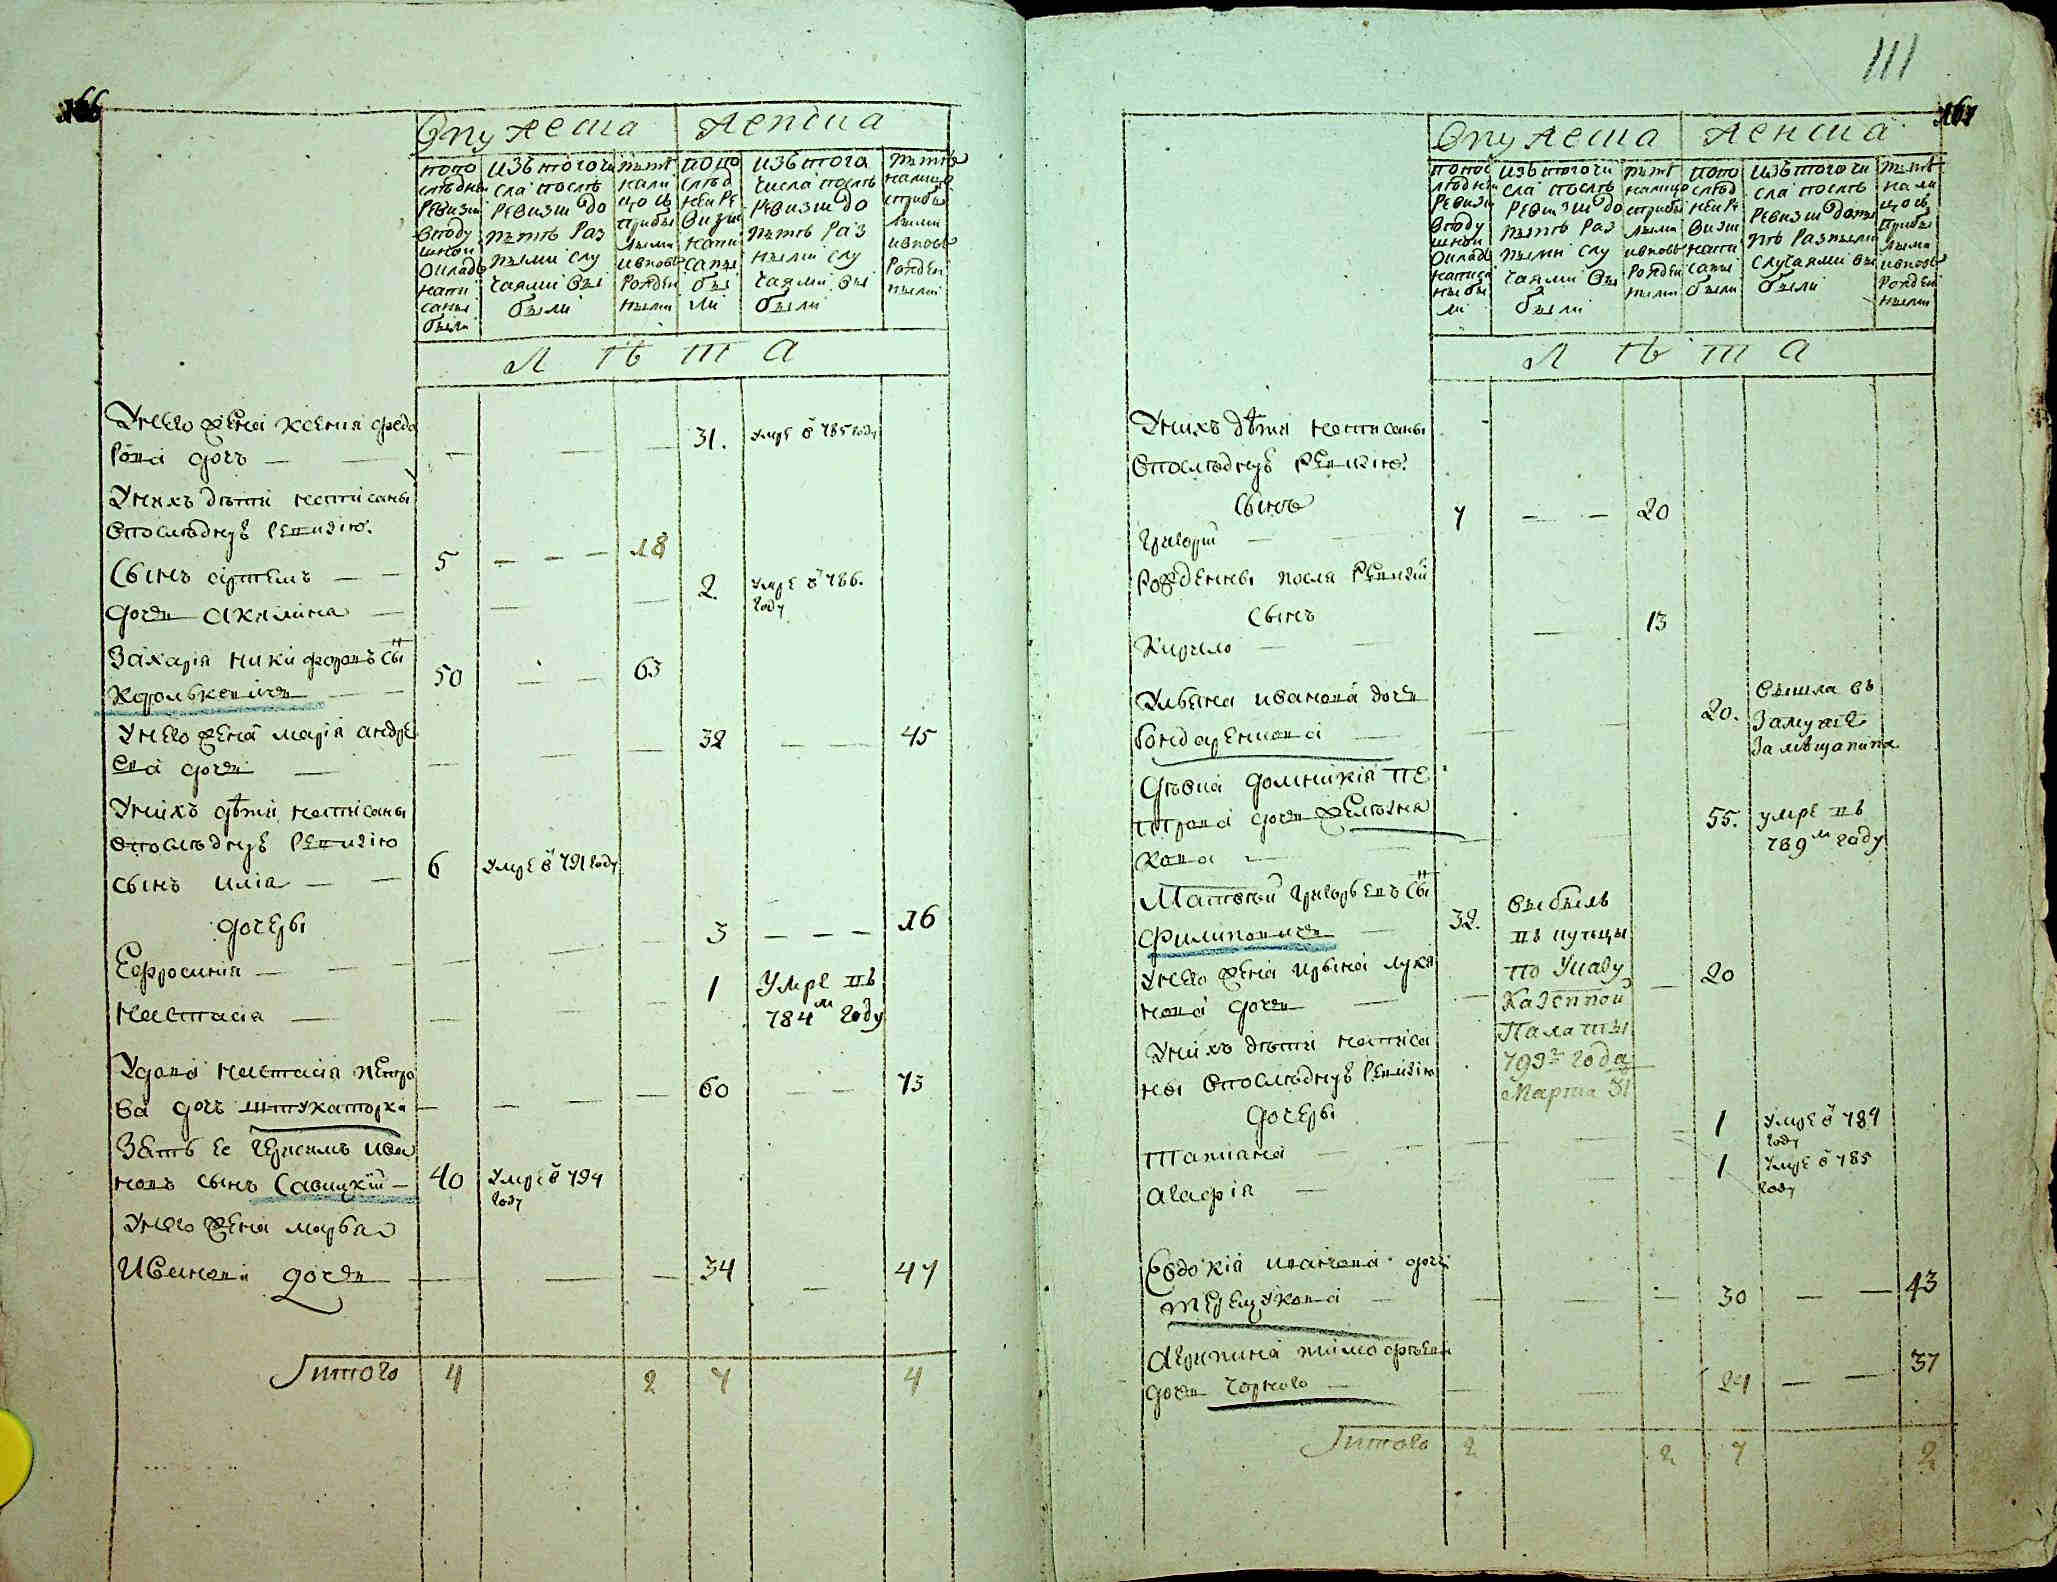 166
О мужеска женска
по по
следней
ревизи
в поду
шном
окладе
напи
саны
были
изъ того чи
сла после
ревизии до
ныне раз
ными слу
чаями вы
были
ныне
нали
цо съ
прибы
лыми
и вновь
рожден
ными
по по
след
ней ре
визии
напи
саны
бы
ли
изъ того
числа после
ревизии до
ныне раз
ными слу
чаями вы
были
ныне
налицо
с прибы
лыми
и вновь
рожден
ными
Л Ѣ Т А
У него жена Ксения Федо
рова дочь — — — — 31. умре в 785 году
У нихъ дѣти написаны
в последнюю ревизию.
Сынъ Артемъ — 5 — — — 18
дочь Акилина — — — 2 умре в 786.
году
Захария Никифоровъ сынъ
Королькевичъ — 50 — — 63
У него жена Мария Андре
ева дочь — — — — 32 — — 45
У нихъ дѣти написаны
в последнюю ревизию
сынъ Илиа — 6 умре в 791 году
дочери
Ефросиния — — — — 3 — — — 16
Настасия — — — — 1 умре въ
784м году
Удова Настасия Петро
ва дочь Штукаторка — — — 60 — — 73
Зять ее Герасимъ Ива
новъ сынъ Савицкий — 40 умре в 794
году
У него жена Марва
Иванова дочь — — — 34 — 47
Итого 4 2 7 4
111
167
О мужеска женска
по пос
ледней
ревизи
в поду
шном
окладе
написа
ны бы
ли
изъ того чи
сла после
ревизии до
ныне раз
ными слу
чаями вы
были
ныне
налицо
с прибы
лыми
и вновь
рожден
ными
по по
след
ней ре
визии
напи
саны
были
изъ того чи
сла после
ревизии до ны
не разными
случаями вы
были
ныне
нали
цо съ
прибы
лыми
и вновь
рожден
ными
Л Ѣ Т А
У нихъ дѣти написаны
в последнюю ревизию.
Сынъ
Григорий — 7 — — 20
Рожденны после ревизии
Сынъ
Кирило — — 13
Улияна Иванова дочь
Бондаренкова — — — 20. вышла въ
замужъе
за мещанина
Девка Домникия Пе
трова дочь Железня
кова — — — 55. умре въ
789м году
Матвей Григорьевъ сынъ
Филиповичъ — 32. выбылъ
въ купцы
по указу
Казенной
Палаты
793го года
Марта 31
У него жена Ирина Лукя
нова дочь — — — 20
У нихъ дѣти написа
ны в последнюю ревизию
дочери
Татиана — — — 1 умре в 784
году
Агафия — — 1 умре в 785
году
Евдокия Иванова дочь
Терещукова — — — — 30 — — 43
Агрипина Тимофеева
дочь Чорного — — — 24 — — 37
Итого 2 2 7 2